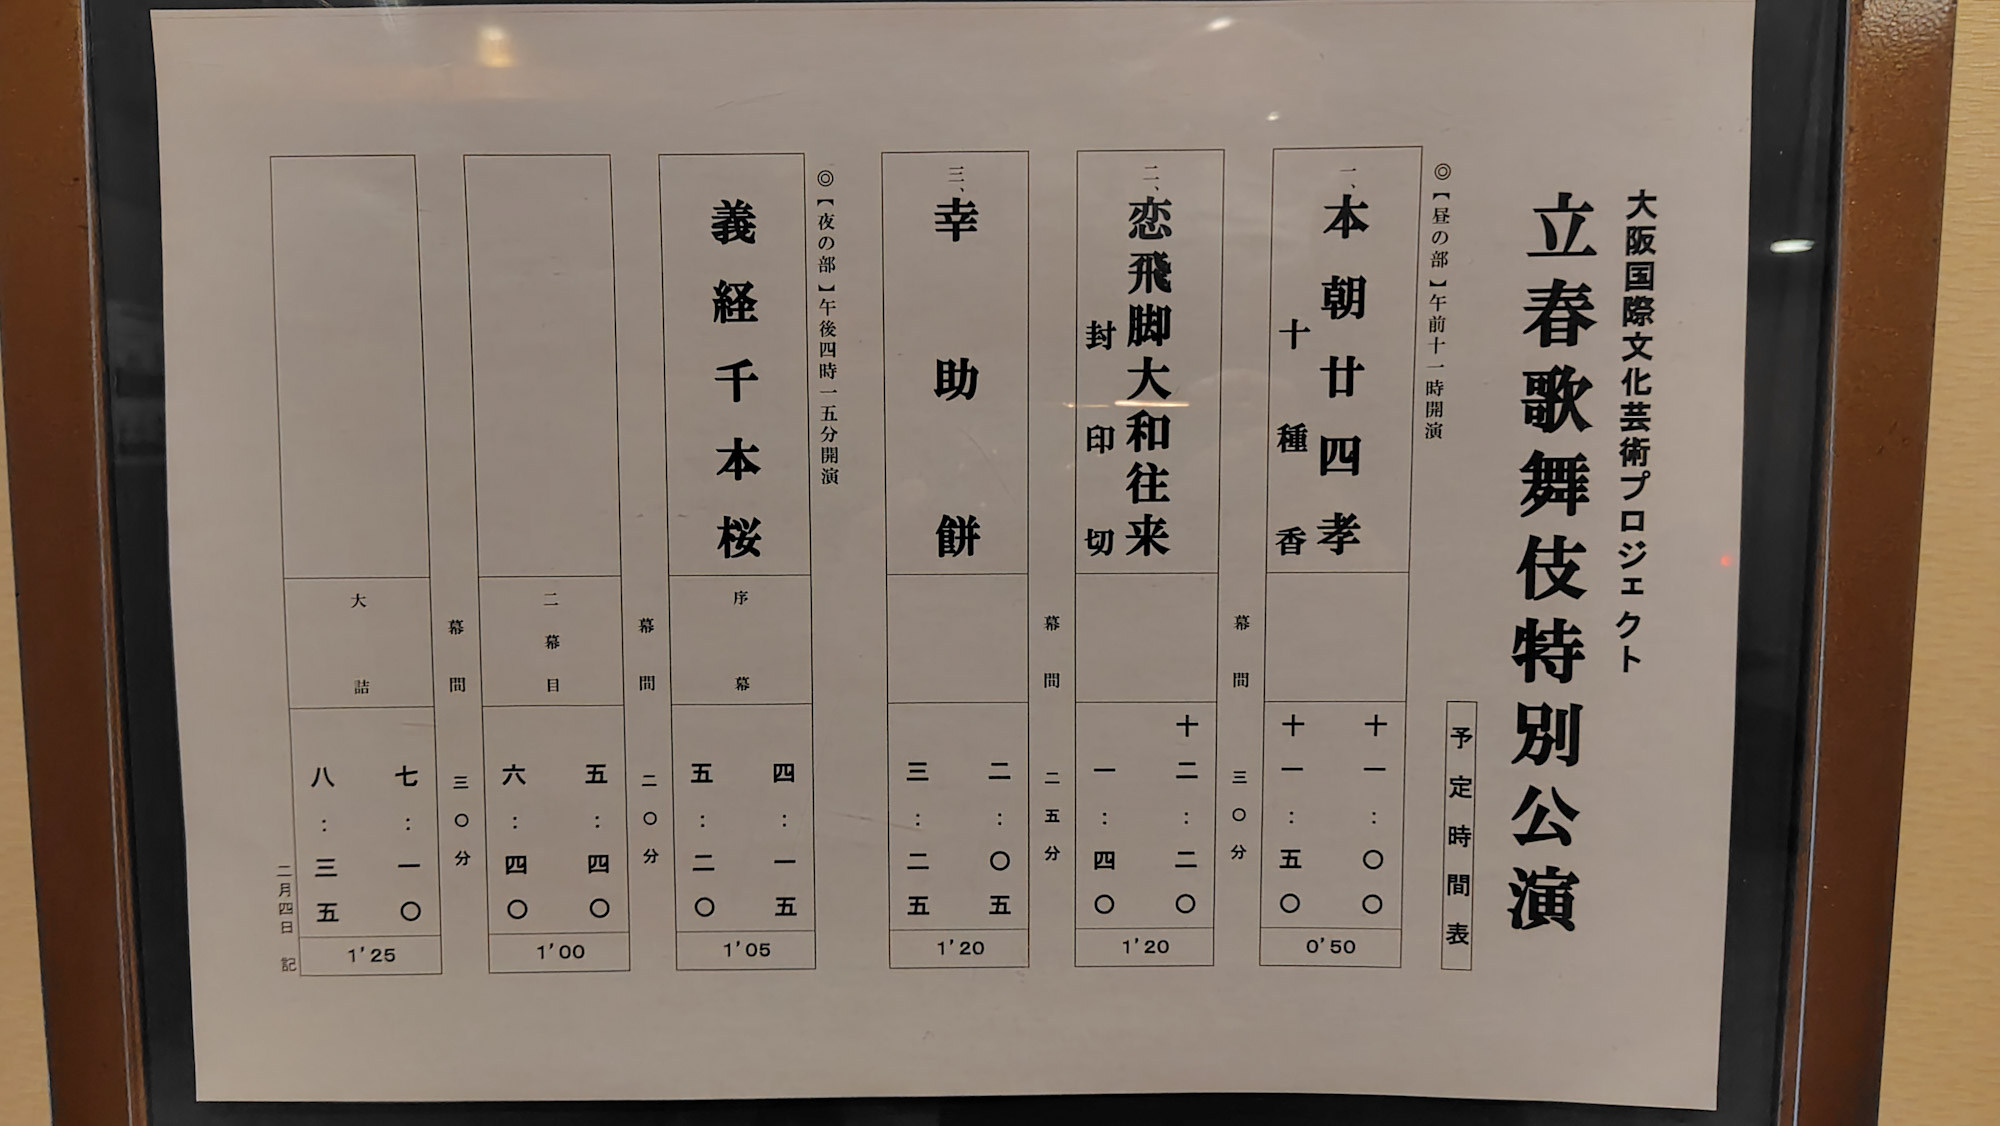 大阪国際文化芸術プロジェクト
立春歌舞伎特別公演
予定時間表
◎【昼の部】午前十一時開演
一、本朝廿四孝
十種香
十一:〇〇
十一:五〇
0'50
幕間 三〇分
二、恋飛脚大和往来
封印切
十二:二〇
一:四〇
1'20
幕間 二五分
三、幸助餅
二:〇五
三:二五
1'20
◎【夜の部】午後四時一五分開演
義経千本桜
序幕
四:一五
五:二〇
1'05
幕間 二〇分
二幕目
五:四〇
六:四〇
1'00
幕間 三〇分
大詰
七:一〇
八:三五
1'25
二月四日 記